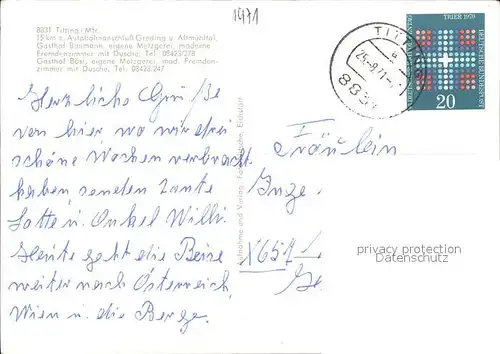 1971
8831 Titting/Mfr.
15 km z. Autobahnanschluß Greding u. Altmühltal,
Gasthof Baumann, eigene Metzgerei, moderne
Fremdenzimmer mit Dusche, Tel. 08423/278
Gasthof Bösl, eigene Metzgerei, mod. Fremden-
zimmer mit Dusche, Tel. 08423/247
TITTING
25.-8.71
8831
TRIER 1970
DEUTSCHE BUNDESPOST
20
Herzliche Grüße
von hier wo wir drei
schöne Wochen verbracht
haben senden Tante
Lotte u. Onkel Willi.
Heute geht die Reise
weiter nach Österreich,
Wien u. die Berge.
Aufnahme und Verlag: Eichstätt
Fräulein
Inge
X651
Ge
privacy protection
Datenschutz